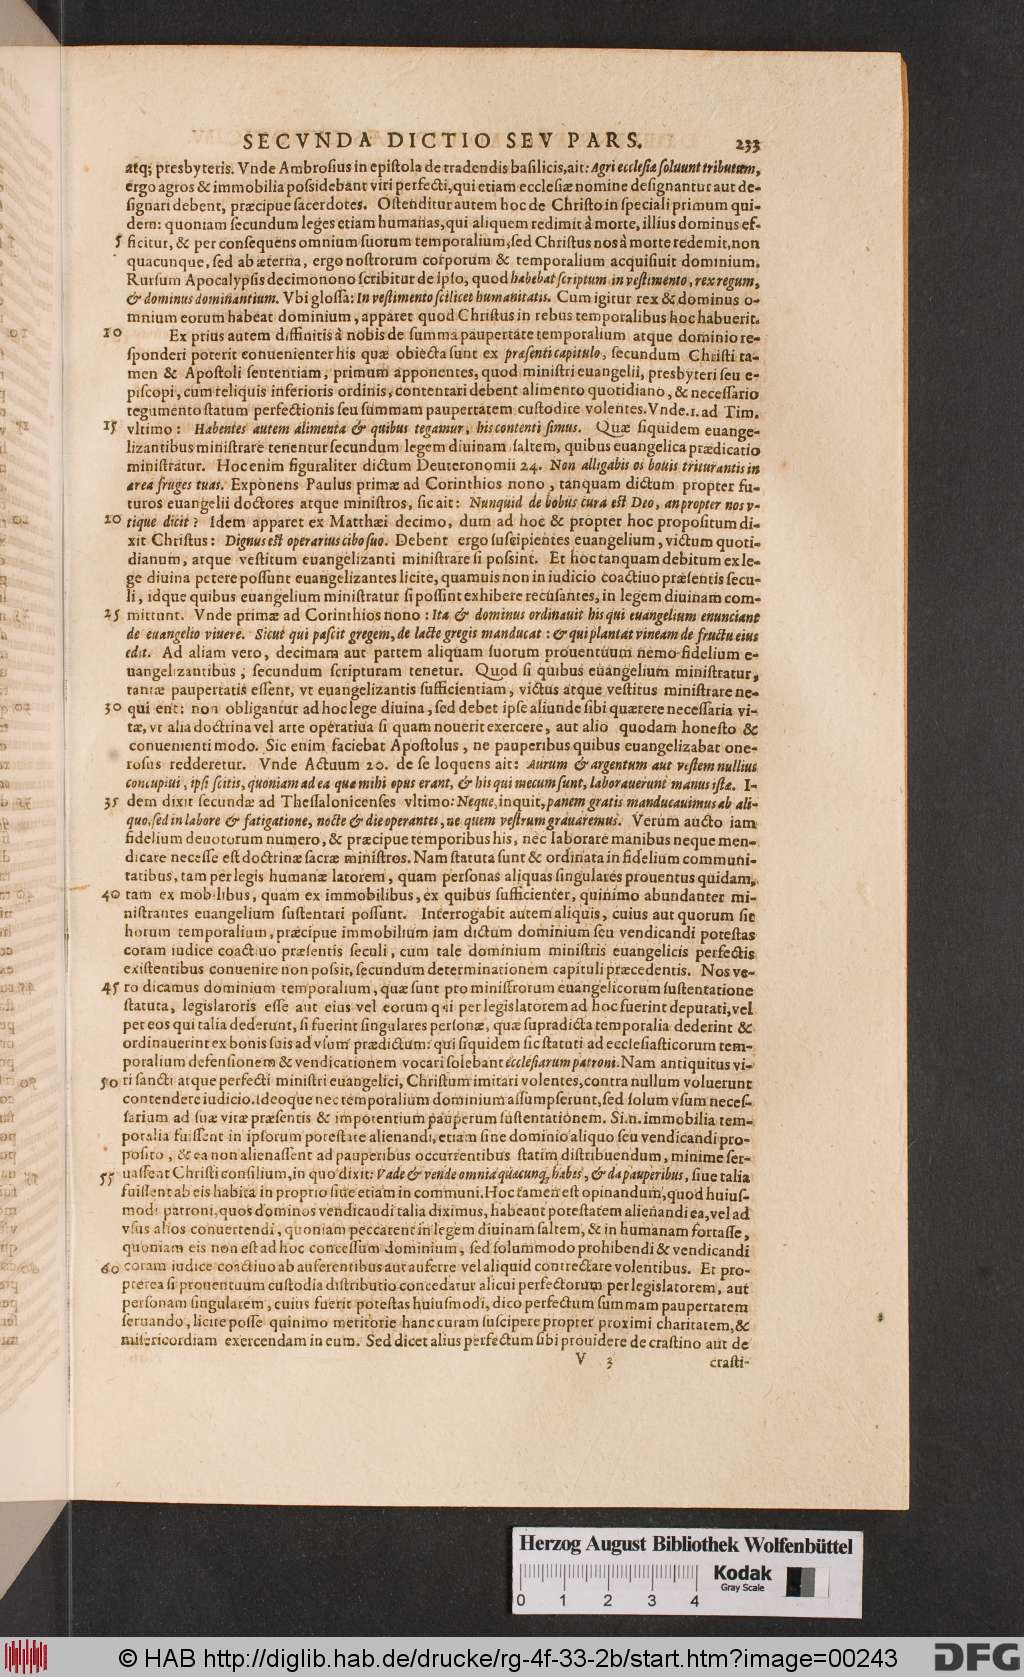 SECVNDA DICTIO SEV PARS. 233
atq; presbyteris. Vnde Ambrosius in epistola de tradendis basilicis, ait: Agri ecclesiæ soluunt tributum,
ergo agros & immobilia possidebant viri perfecti, qui etiam ecclesiæ nomine designantur aut de-
signari debent, præcipue sacerdotes. Ostenditur autem hoc de Christo in speciali primum qui-
dem: quoniam secundum leges etiam humanas, qui aliquem redimit à morte, illius dominus ef-
5 ficitur, & per consequens omnium suorum temporalium, sed Christus nos à morte redemit, non
quacunque, sed ab æterna, ergo nostrorum corporum & temporalium acquisiuit dominium.
Rursum Apocalypsis decimonono scribitur de ipso, quod habebat scriptum in vestimento, rex regum,
& dominus dominantium. Vbi glossa: In vestimento scilicet humanitatis. Cum igitur rex & dominus o-
mnium eorum habeat dominium, apparet quod Christus in rebus temporalibus hoc habuerit.
10 Ex prius autem diffinitis à nobis de summa paupertate temporalium atque dominio re-
sponderi poterit conuenienter his quæ obiecta sunt ex præsenti capitulo, secundum Christi ta-
men & Apostoli sententiam, primum apponentes, quod ministri euangelii, presbyteri seu e-
piscopi, cum reliquis inferioris ordinis, contentari debent alimento quotidiano, & necessario
tegumento statum perfectionis seu summam paupertatem custodire volentes. Vnde .1. ad Tim.
15 vltimo: Habentes autem alimenta & quibus tegamur, his contenti simus. Quæ siquidem euange-
lizantibus ministrare tenentur secundum legem diuinam saltem, quibus euangelica prædicatio
ministratur. Hoc enim figuraliter dictum Deuteronomii 24. Non alligabis os bouis triturantis in
area fruges tuas. Exponens Paulus primæ ad Corinthios nono, tanquam dictum propter fu-
turos euangelii doctores atque ministros, sic ait: Nunquid de bobus cura est Deo, an propter nos v-
20 tique dicit? Idem apparet ex Matthæi decimo, dum ad hoc & propter hoc propositum di-
xit Christus: Dignus est operarius cibo suo. Debent ergo suscipientes euangelium, victum quoti-
dianum, atque vestitum euangelizanti ministrare si possint. Et hoc tanquam debitum ex le-
ge diuina petere possunt euangelizantes licite, quamuis non in iudicio coactiuo præsentis secu-
li, idque quibus euangelium ministratur si possint exhibere recusantes, in legem diuinam com-
25 mittunt. Vnde primæ ad Corinthios nono: Ita & dominus ordinauit his qui euangelium enunciant
de euangelio viuere. Sicut qui pascit gregem, de lacte gregis manducat: & qui plantat vineam de fructu eius
edit. Ad aliam vero, decimam aut partem aliquam suorum prouentuum nemo fidelium e-
uangelizantibus, secundum scripturam tenetur. Quod si quibus euangelium ministratur,
tantæ paupertatis essent, vt euangelizantis sufficientiam, victus atque vestitus ministrare ne-
30 qui ent: non obligantur ad hoc lege diuina, sed debet ipse aliunde sibi quærere necessaria vi-
tæ, vt alia doctrina vel arte operatiua si quam nouerit exercere, aut alio quodam honesto &
conuenienti modo. Sic enim faciebat Apostolus, ne pauperibus quibus euangelizabat one-
rosus redderetur. Vnde Actuum 20. de se loquens ait: Aurum & argentum aut vestem nullius
concupiui, ipsi scitis, quoniam ad ea quæ mihi opus erant, & his qui mecum sunt, laborauerunt manus istæ. I-
35 dem dixit secundæ ad Thessalonicenses vltimo: Neque, inquit, panem gratis manducauimus ab ali-
quo, sed in labore & fatigatione, nocte & die operantes, ne quem vestrum grauaremus. Verum aucto iam
fidelium deuotorum numero, & præcipue temporibus his, nec laborare manibus neque men-
dicare necesse est doctrinæ sacræ ministros. Nam statuta sunt & ordinata in fidelium communi-
tatibus, tam per legis humanæ latorem, quam personas aliquas singulares prouentus quidam,
40 tam ex mobilibus, quam ex immobilibus, ex quibus sufficienter, quinimo abundanter mi-
nistrantes euangelium sustentari possunt. Interrogabit autem aliquis, cuius aut quorum sit
horum temporalium, præcipue immobilium iam dictum dominium seu vendicandi potestas
coram iudice coactiuo præsentis seculi, cum tale dominium ministris euangelicis perfectis
existentibus conuenire non possit, secundum determinationem capituli præcedentis. Nos ve-
45 ro dicamus dominium temporalium, quæ sunt pro ministrorum euangelicorum sustentatione
statuta, legislatoris esse aut eius vel eorum qui per legislatorem ad hoc fuerint deputati, vel
per eos qui talia dederunt, si fuerint singulares personæ, quæ supradicta temporalia dederint &
ordinauerint ex bonis suis ad vsum prædictum: qui siquidem sic statuti ad ecclesiasticorum tem-
poralium defensionem & vendicationem vocari solebant ecclesiarum patroni. Nam antiquitus vi-
50 ri sancti atque perfecti ministri euangelici, Christum imitari volentes, contra nullum voluerunt
contendere iudicio. Ideoque nec temporalium dominium assumpserunt, sed solum vsum neces-
sarium ad suæ vitæ præsentis & impotentium pauperum sustentationem. Si.n. immobilia tem-
poralia fuissent in ipsorum potestate alienandi, etiam sine dominio aliquo seu vendicandi pro-
posito, & ea non alienassent ad pauperibus occurrentibus statim distribuendum, minime ser-
55 uassent Christi consilium, in quo dixit: Vade & vende omnia quæcunq; habes, & da pauperibus, siue talia
fuissent ab eis habita in proprio siue etiam in communi. Hoc tamen est opinandum, quod huius-
modi patroni, quos dominos vendicandi talia diximus, habeant potestatem alienandi ea, vel ad
vsus alios conuertendi, quoniam peccarent in legem diuinam saltem, & in humanam fortasse,
quoniam eis non est ad hoc concessum dominium, sed solummodo prohibendi & vendicandi
60 coram iudice coactiuo ab auferentibus aut auferre vel aliquid contrectare volentibus. Et pro-
pterea si prouentuum custodia distributio concedatur alicui perfectorum per legislatorem, aut
personam singularem, cuius fuerit potestas huiusmodi, dico perfectum summam paupertatem
seruando, licite posse quinimo meritorie hanc curam suscipere propter proximi charitatem, &
misericordiam exercendam in eum. Sed dicet alius perfectum sibi prouidere de crastino aut de
V 3 crasti-
Herzog August Bibliothek Wolfenbüttel
Kodak
Gray Scale
0 1 2 3 4
© HAB http://diglib.hab.de/drucke/rg-4f-33-2b/start.htm?image=00243
DFG